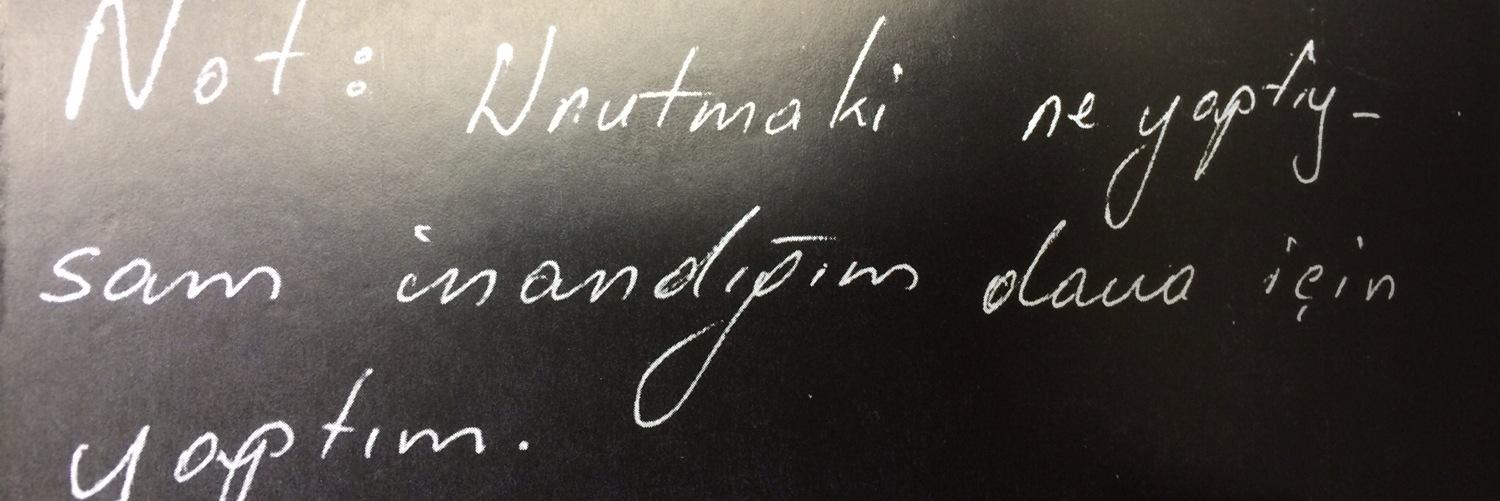 Not: Unutmaki ne yaptıy-
sam inandığım dava için
yaptım.